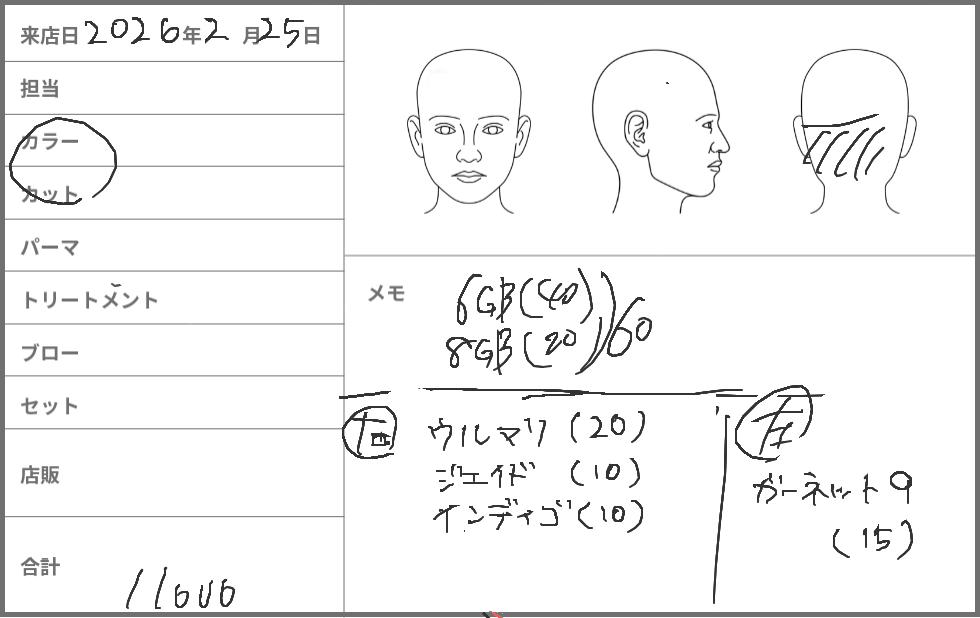 来店日 2026年2月25日
担当
カラー
カット
パーマ
トリートメント
ブロー
セット
店販
合計
11000
メモ
6GB(40)
8GB(20)
60
右
ウルマリ(20)
ジェイド(10)
インディゴ(10)
左
ガーネット9
(15)